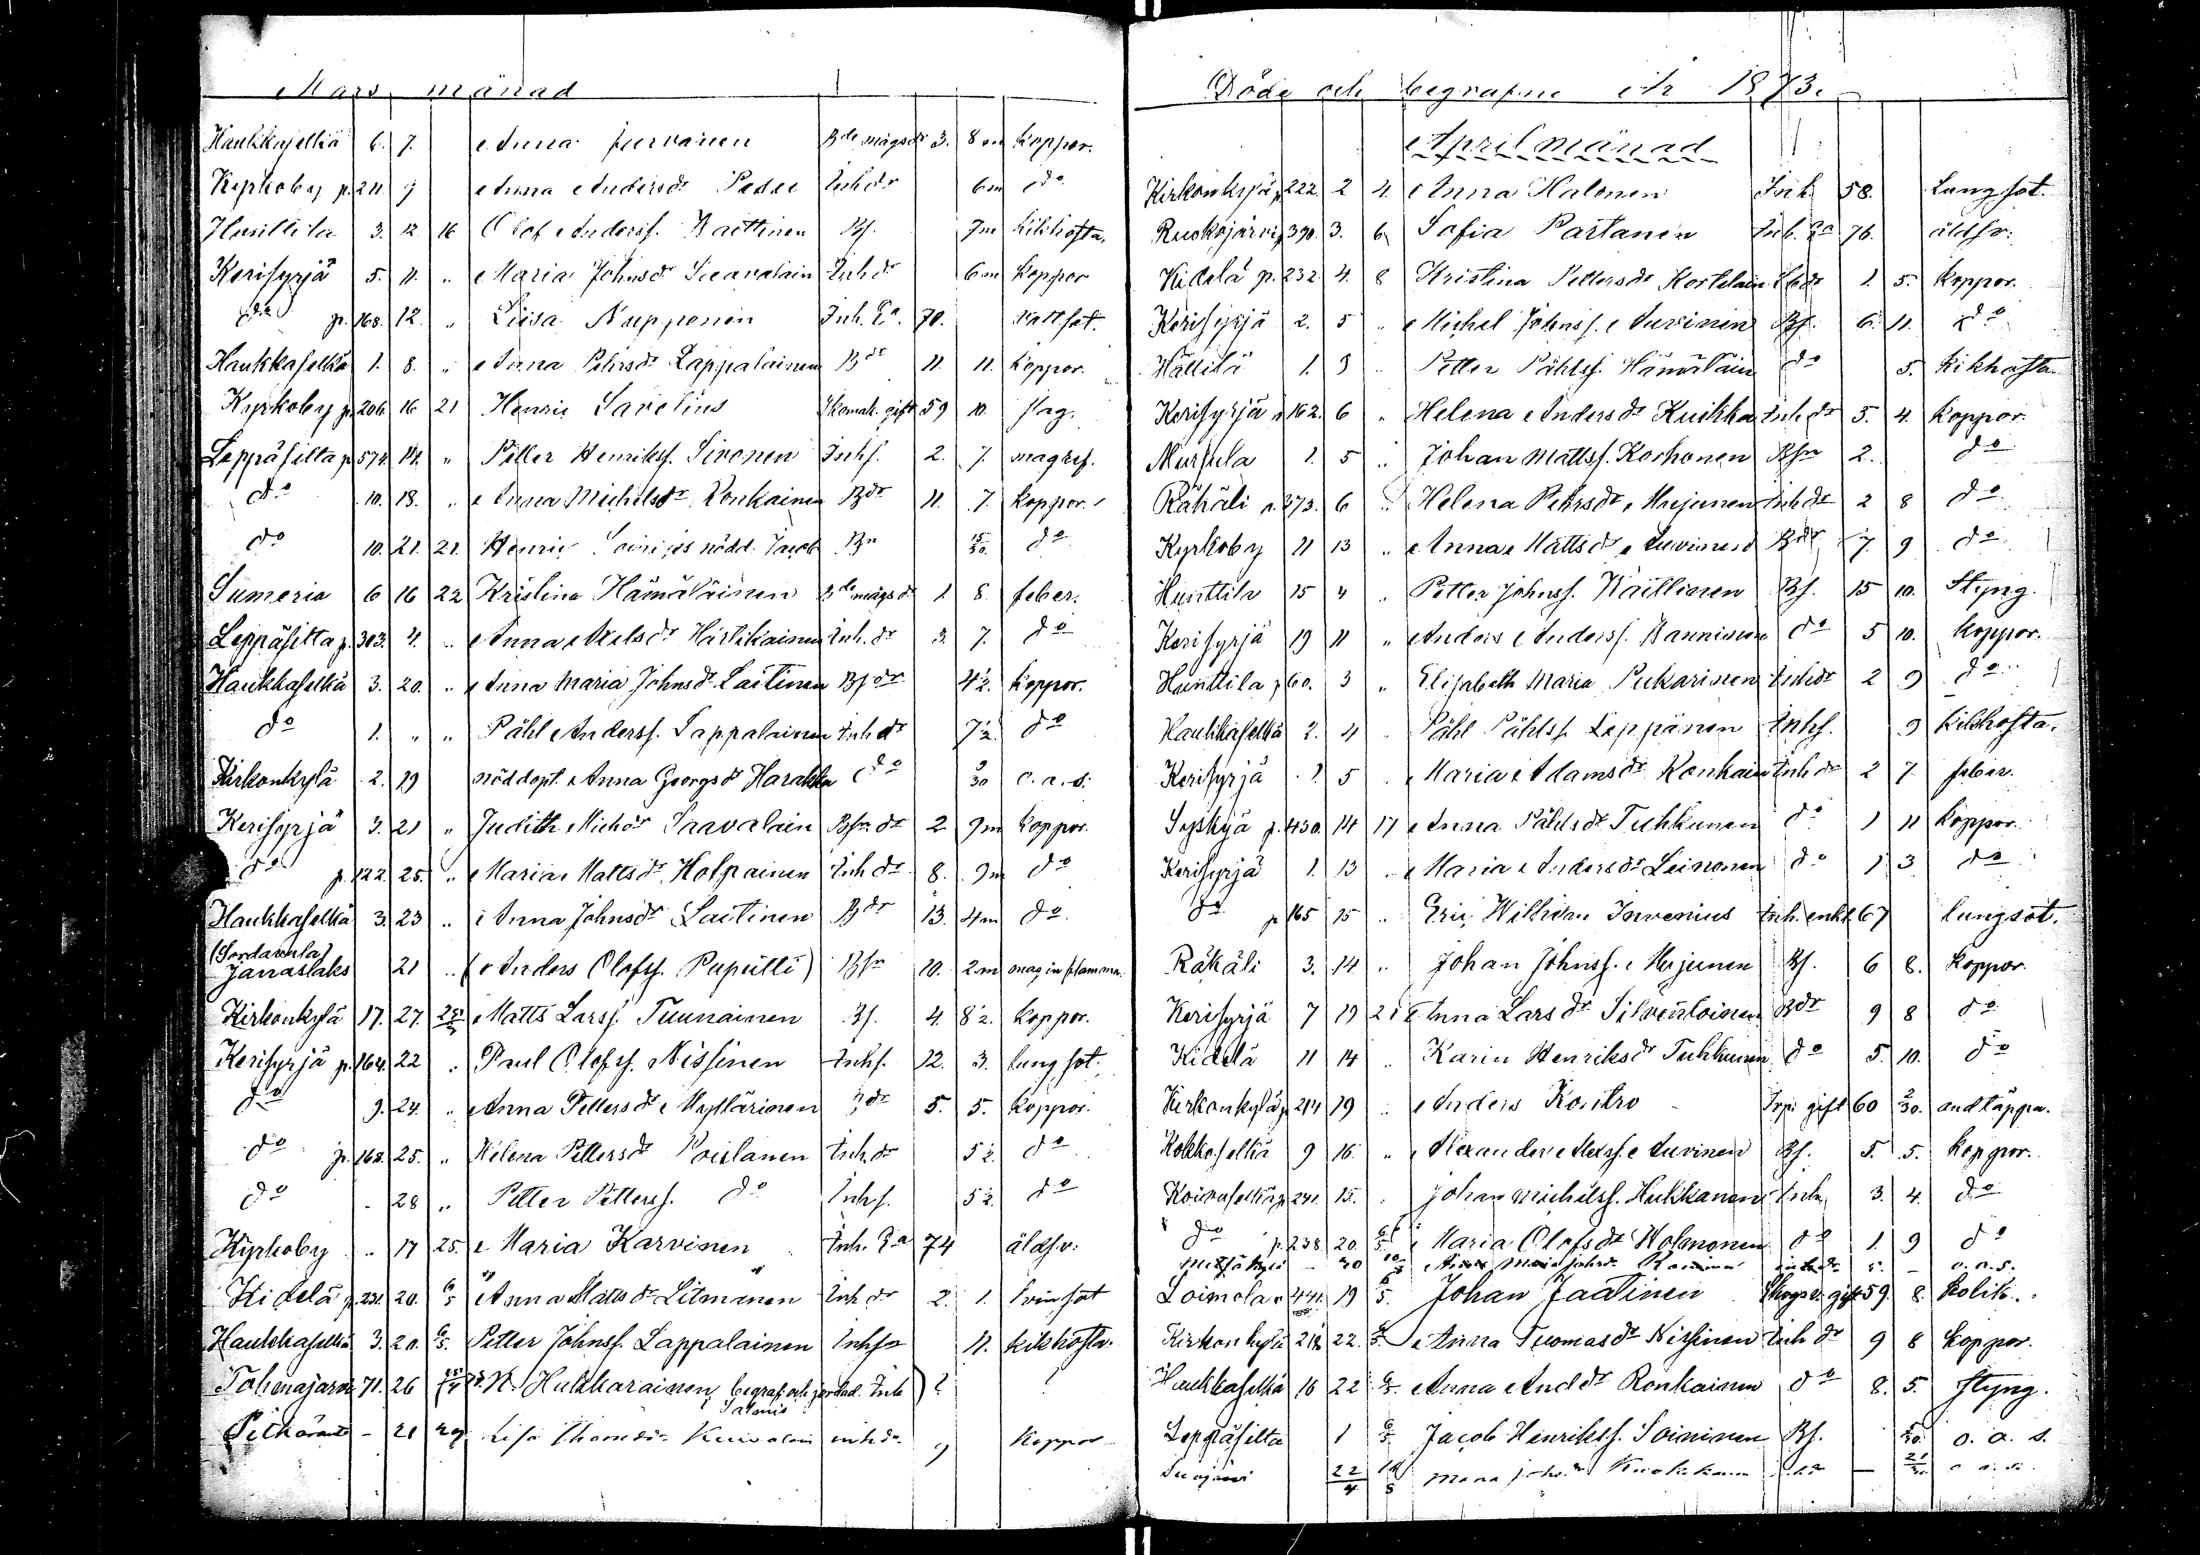 Mars månad
Haukkaselkä 6. 7. Anna Purvanen Bde mågsdr 3. 8 m koppor.
Kyrkoby p. 211 9 Anna Andersdr Pesu Inhdr 6m do
Hunttila 3. 12 16 Olof Anderss. Waittinen Bs. 7m Kikhosta.
Kerisyrjä 5. 11. " Maria Johnsdr Suavalain Inhdr 6m koppor
do p. 168. 12. " Liisa Nupponen Inh. Ea. 70.
Haukkaselkä 1. 8. " Anna Pehrsdr Lappalainen Bdr 11. 11. koppor.
Kyrkoby p. 206 16 21 Henric Savelius Skomak. gift 59 10. slag.
Leppäsilta p. 574. 14. " Petter Henrikss. Sironen Inhs. 2. 7.
do 10. 18. " Anna Michelsdr Ronkainen Bdr 11. 7. koppor.
do 10. 21. 21. Henric nödd. Jacob Bn 15/30. do
Sumeria 6 16 22 Kristina Hämäläinen Bde mågsdr 1. 8. feber.
Leppäsilta p. 303. 4. " Anna Axelsdr Härkikainen Inh. dr 3. 7. do
Haukkaselkä 3. 20. " Anna Maria Johnsdr Laitinen Bsdr 4½. koppor.
do 1. " " Påhl Anderss. Lappalainen Inhdr 7½. do
Kirkonkylä 2. 19 nöddopt. Anna Georgsdr Harakka do 9/30 o. a. s.
Kerisyrjä 3. 21 " Judith Michdr Saavalain Bsndr 2 9m koppor.
do p. 122. 25. " Maria Mattsdr Holpainen Inhdr 8. 9m do
Haukkaselkä 3. 23 " Anna Johnsdr Laitinen Bdr 13. 4m do
(Sordavala)
Janaslaks 21 " (Anders Olofss. Paputti) Bsn 10. 2m mag inflamma.
Kirkonkylä 17. 27. Matts Larss. Tuunainen Bs. 4. 8½. koppor.
Kerisyrjä p. 164. 22 " Paul Olofss. Nissinen Inhs. 12. 3. lungsot.
do 9. 24. " Anna Pettersdr Myllärinen Bdr 5. 5. koppor.
do p. 168. 25. " Helena Pettersdr Poislanen Inh. dr 5½. do
do - 28 " Petter Petterss. do Inhs. 5½. do
Kyrkoby " 17 25. Maria Karvinen Inh. Ea 74 åldsv.
Kidelä p. 231. 20. 6/5 Anna Mattsdr Litmanen Inhdr 2. 1. tvinsot
Haukkaselkä 3. 20. 6/5. Petter Johnss. Lappalainen Inhsn 11. kikhosta.
Tohmajärvi 71. 26 N. Hukkarainen, begraf. och jordad. Inh ) ? ?
i Salmis
Pitkäranta - 21 29 Lisa Thomsdr Kuivalain inhdr 9 koppor

Döde och begrafne År 1873.
April månad
Kirkonkylä p. 222. 2 4. Anna Halonen Inh. 58. Lungsot.
Ruokojärvi p. 390. 3. 6. Sofia Partanen Inh. Ea 76. åldsv.
Kidelä p. 232. 4. 8 Kristina Pettersdr Kortelain 1. 5. koppor.
Kerisyrjä 2. 5 " Michel Johnss. Auvinen Bs. 6. 11. do
Hällilä 1. 3 " Petter Påhlss. Hämäläin do 5. Kikhosta
Kerisyrjä p. 162. 6 " Helena Andersdr Kuikka Inhdr 5. 4. koppor.
Mursula 1. 5 " Johan Mattss. Korhonen Bsn 2. do
Räkäli p. 373. 6 " Helena Pehrsdr Mujunen Inhdr 2 8 do
Kyrkoby 11 13 " Anna Mattsdr Auvinen Bdr 7. 9 do
Hunttila 15 4 " Petter Johnss. Waittinen Bs. 15 10. Styng.
Kerisyrjä 19 11 " Anders Anderss. Banninen do 5 10. koppor.
Hunttila p. 60. 3 " Elisabeth Maria Pukarinen Inhdr 2 9 do
Haukkaselkä 2. 4 " Påhl Påhlss. Leppänen Inhs. 9 Kikhosta.
Kerisyrjä 1. 5 " Maria Adamsdr Ronkain Inhdr 2 7. feber.
Syskyä p. 430. 14 17 Anna Påhlsdr Tuhkunen do 1 11 koppor.
Kerisyrjä 1. 13 " Maria Andersdr Leinonen do 1 3 do
do p. 165 15 " Eric Willideu Invenius Inh. enkl. 67 lungsot.
Räkäli 3. 14 " Johan Johnss. Mujunen Bs. 6 8. koppor.
Kerisyrjä 7 19 21 Anna Larsdr Silventoinen Bdr 9 8 do
Kidelä 11 14 " Karin Henriksdr Tuhkunen do 5. 10. do
Kirkonkylä p. 214 19 " Anders Kontro Torp. gift 60 2/30. andtäppa.
Kokkoselkä 9 16 " Alexander Alexss. Auvinen Bs. 5. 5. koppor.
Koivuselkä p. 241. 15. " Johan Michelss. Hukkanen Inhs 3. 4. do
do p. 238. 20. 6/5 Maria Olofsdr Holmonen do 1. 9 do
- 30 Anna Maria Johsdr inhdr - o. a. s.
Loimola p. 441. 19 6/5. Johan Jaatinen Skogsv. gift 59. 8. Kolik.
Kirkonkylä 218 22. 6/5. Anna Tuomasdr Nissinen Inhdr 9 8 koppor.
Haukkaselkä 16 22 6/5. Anna Anddr Ronkainen do 8. 5. Styng.
Leppäsilta 1 6/5. Jacob Henrikss. Soininen Bs. o. a. s.
Suojärvi 22/4 Maria Johsdr - 21/30 o. a. s.